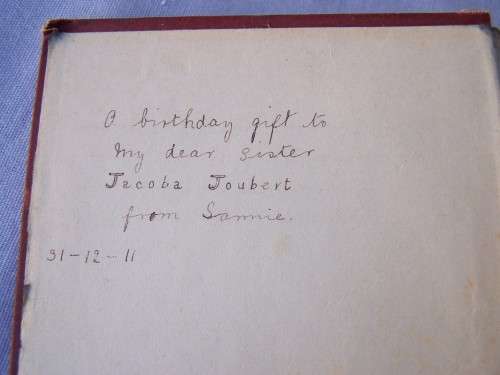 A birthday gift to
my dear sister
Jacoba Joubert
from Sannie.
31-12-11